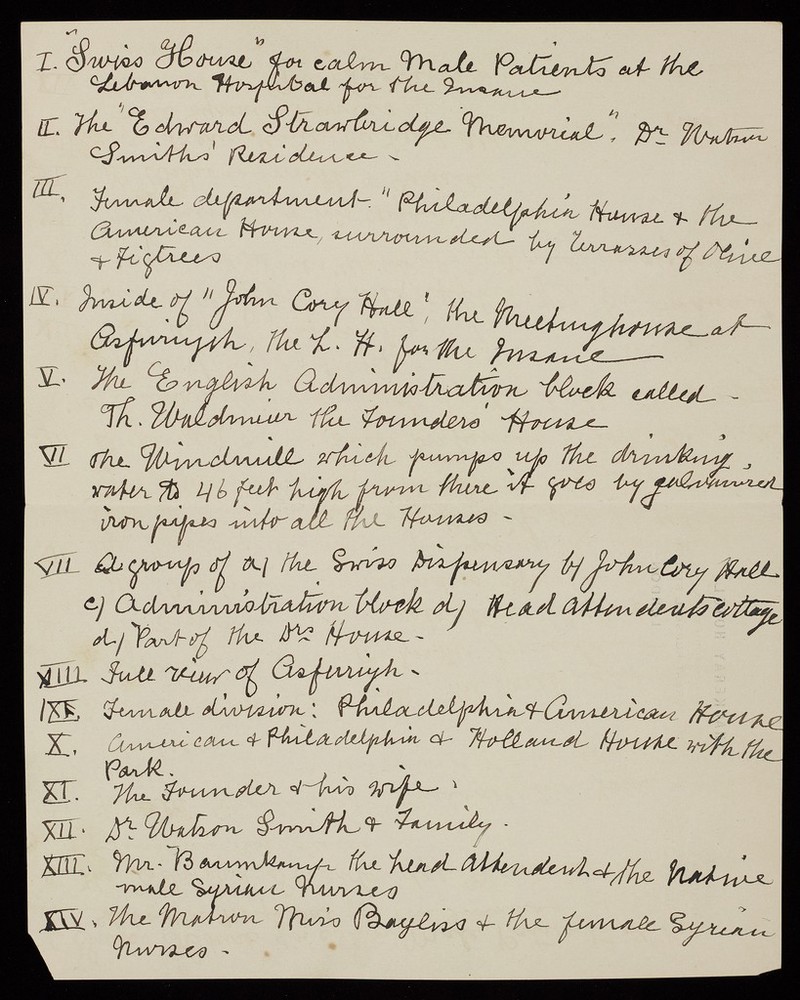 I. "Swiss House" for calm Male Patients at the
Lebanon Hospital for the Insane
II. The "Edward Strawbridge Memorial". Dr Watson
Smiths' Residence -
III. Female department. "Philadelphia House & the
American House, surrounded by Terrasses of Olive
& Figtrees
IV. Inside of "John Cory Hall", the Meetinghouse at
Asfuriyeh, the L. H. for the Insane
V. The English Administration block called -
Th. Waldmeier the Founders' House
VI The Windmill which pumps up the drinking
water to 46 feet high from there it goes by galvanized
iron pipes into all the Houses -
VII A group of a) the Swiss Dispensary b) John Cory Hall
c) Administration block d) Head Attendents cottage
d.) Part of the Drs House -
VIII Full view of Asfuriyh -
IX. Female division: Philadelphia & American House
X. American & Philadelphia & Holland House with the
Park.
XI. The Founder & his wife.
XII. Dr Watson Smith & Family.
XIII. Mr. Baumkamp the head Attendent & the native
male Syrian Nurses
XIV. The Matron Miss Bayliss & the female Syrian
Nurses -